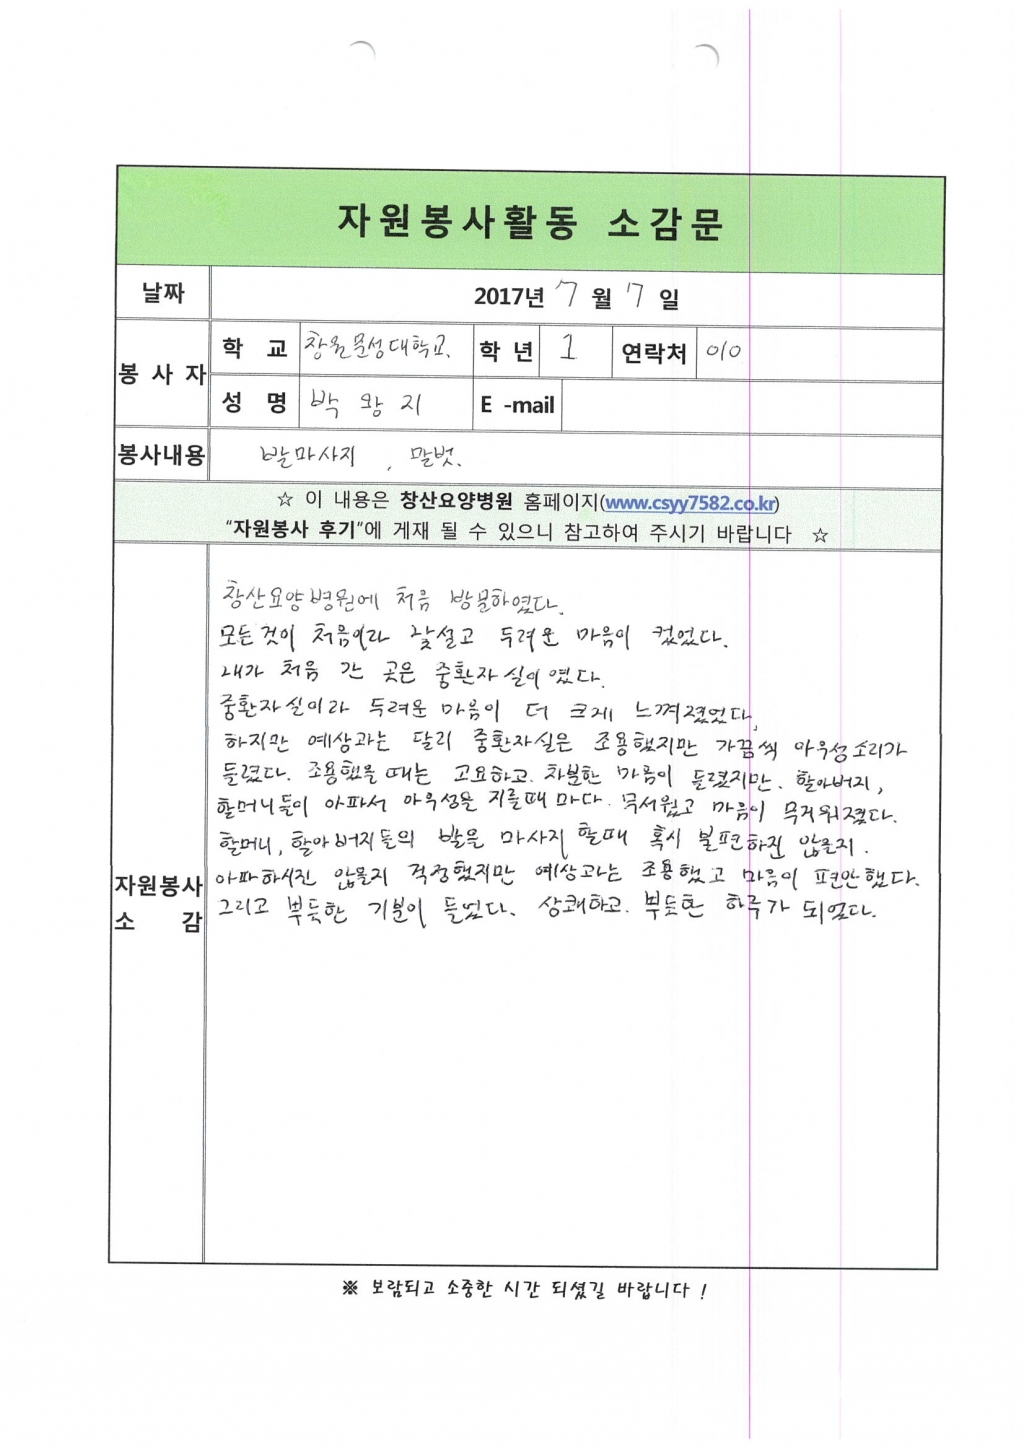 자원봉사활동 소감문
날짜 2017년 7 월 7 일
봉 사 자 학 교 창원문성대학교. 학 년 1 연락처 010
성 명 박 왕 지 E -mail
봉사내용 발마사지 , 말벗.
☆ 이 내용은 창산요양병원 홈페이지(www.csyy7582.co.kr)
"자원봉사 후기"에 게재 될 수 있으니 참고하여 주시기 바랍니다 ☆
자원봉사
소 감
창산요양병원에 처음 방문하였다.
모든것이 처음이라 낯설고 두려운 마음이 컸었다.
내가 처음 간 곳은 중환자실이였다.
중환자실이라 두려운 마음이 더 크게 느껴졌었다.
하지만 예상과는 달리 중환자실은 조용했지만 가끔씩 아우성소리가
들렸다. 조용했을때는 고요하고. 차분한 마음이 들렸지만. 할아버지,
할머니들이 아파서 아우성을 지를때 마다. 무서웠고 마음이 무거워졌다.
할머니, 할아버지들의 발을 마사지 할때 혹시 불편하진 않을지.
아파하시진 않을지 걱정했지만 예상과는 조용했고 마음이 편안했다.
그리고 뿌듯한 기분이 들었다. 상쾌하고. 뿌듯한 하루가 되었다.
※ 보람되고 소중한 시간 되셨길 바랍니다 !